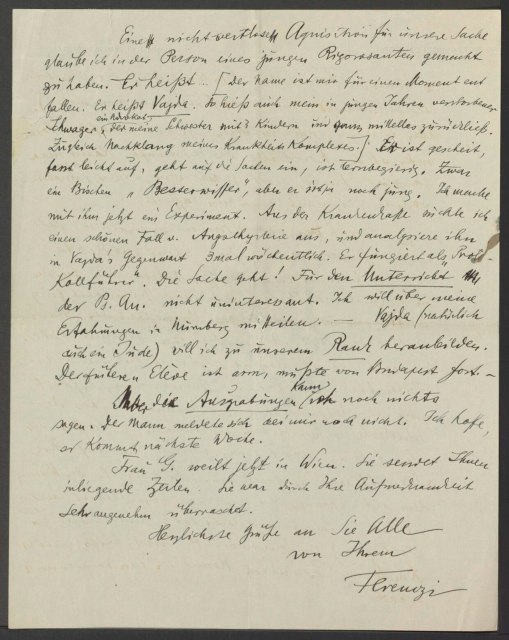 Eine nicht wertlose Aquisition für unsere Sache
glaube ich in der Person eines jungen Rigorosanten gemacht
zu haben. Er heißt.. [der Name ist mir für einen Moment ent
fallen. Er heißt Vajda. So hieß auch mein in jungen Jahren verstorbener
Schwager, der meine Schwester mit Kindern und ganz mittellos zurückließ.
Zugleich Nachklang meines Krankheits Komplexes.] Er ist gescheit,
fasst leicht auf, geht auf die Sachen ein, ist lernbegierig. Zwar
ein Bischen „Besserwisser", aber er ist ja noch jung. Ich mache
mit ihm jetzt ein Experiment. Aus der Krankenkasse suchte ich
einen schönen Fall v. Angsthysterie aus, und analysiere ihn
in Vajda's Gegenwart 3mal wöchentlich. Er fungiert als „Proto-
kollführer". Die Sache geht! Für den Unterricht
der P. An. nicht uninteressant. Ich will über meine
Erfahrungen in Nürnberg mitteilen. — Vajda (natürlich
auch ein Jude) will ich zu unserem Rank heranbilden.
Der frühere Eleve ist arm, mußte von Budapest fort. –
Über die Ausgrabungen kann ich noch nichts
sagen. Der Mann meldete sich bei mir noch nicht. Ich hoffe,
er kommt nächste Woche.
Frau G. weilt jetzt in Wien. Sie sendet Ihnen
inliegende Zeilen. Sie war durch Ihre Aufmerksamkeit
sehr angenehm überrascht.
Herzlichste Grüße an Sie Alle
von Ihrem
Ferenczi